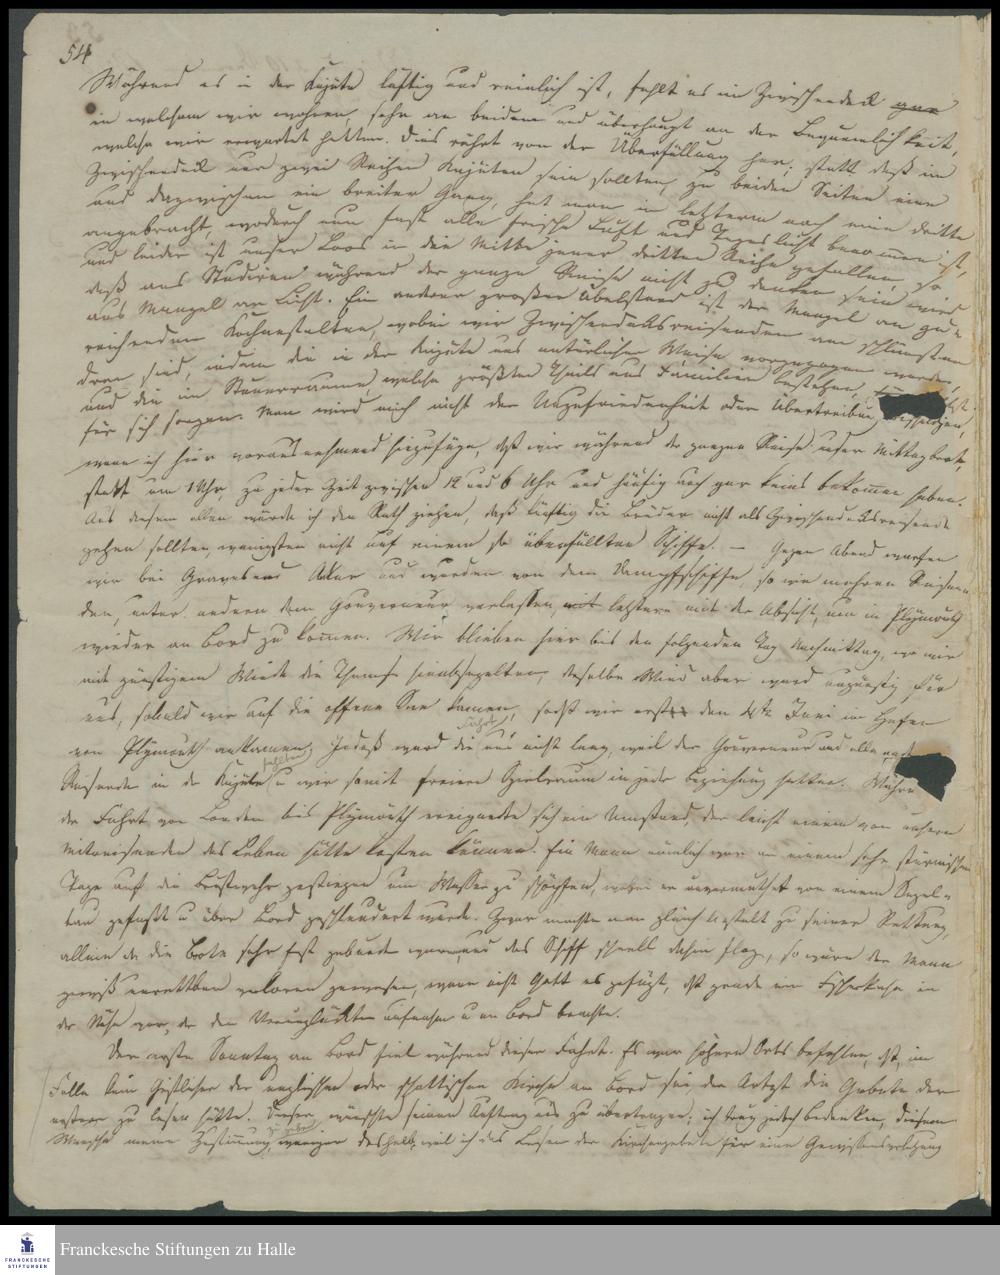 54
Während es in der Kajüte luftig und reinlich ist, fehlt es im Zwischendeck gar
in welchem wir wohnen, sehr an beidem und überhaupt an der Bequemlichkeit,
welche wir erwartet hatten. Dies rührt von der Überfüllung her; statt daß im
Zwischendeck nur zwei Reihen Kajüten sein sollten, zu beiden Seiten eine
und dazwischen ein breiter Gang, hat man in letzterm noch eine dritte
angebracht, wodurch nun fast alle frische Luft und Tageslicht benommen ist,
und leider ist unser Loos in die Mitte jener dritten Reihe gefallen, so
daß ans Studiren während der ganze Reise nicht zu denken sein wird
aus Mangel an Licht. Ein anderer großer Übelstand ist der Mangel an zu-
reichenden Kochanstalten, wobei wir Zwischendecksreisenden am schlimsten
dran sind, indem die in der Kajüte uns natürlicher Weise vorgezogen werden,
und die im Steuerraume, welche größten Theils aus Familien bestehen,
für sich sorgen. Man wird mich nicht der Unzufriedenheit oder Übertreibung
wenn ich hier vorausnehmend hinzufüge, daß wir während der ganzen Reise unser Mittagbrot,
statt um 1 Uhr, zu jeder Zeit zwischen 12 und 6 Uhr und häufig auch gar keins bekommen haben.
Aus diesem allen würde ich den Rath ziehen, daß künftig die Brüder nicht als Zwischendecksreisende
gehen sollten, wenigsten nicht auf einem so überfüllten Schiffe. — Gegen Abend warfen
wir bei Gravesend Anker und wurden von dem Dampfschiffe, so wie mehren Reisen-
den, unter andern dem Gouverneur verlassen, mit letztere mit der Absicht, um in Plymouth
wieder an Bord zu kommen. Wir blieben hier bis den folgenden Tag Nachmittag, wo wir
mit günstigem Winde die Themse hinabsegelten, derselbe Wind aber ward ungünstig für
uns, sobald wir auf die offene See kamen, sodaß wir erst den 4ten Juni im Hafen
von Plymouth ankamen. Indeß ward die Fahrt uns nicht lang, weil der Gouverneur und alle
Reisende in der Kajüte fehlten u wir somit freiern Spielraum in jeder Beziehung hatten. Während
der Fahrt von London bis Plymouth ereignete sich ein Umstand, der leicht einem von unsern
Mitreisenden das Leben hätte kosten können. Ein Mann nämlich war an einem sehr stürmischen
Tage auf die Brustwehr gestiegen um Wasser zu schöpfen, wobei er unvermuthet von einem Segel-
tau gefaßt u über Bord geschleudert wurde. Zwar machte man gleich Anstalt zu seiner Rettung,
allein da die Bote sehr fest gebunden waren, und das Schiff schnell dahin flog, so wäre der Mann
gewiß unrettbar verloren gewesen, wenn nicht Gott es gefügt, daß grade ein Fischerkahn in
der Nähe war, der den Verunglückten aufnahm u an Bord brachte.
Der erste Sonntag an Bord fiel während dieser Fahrt. Es war höhern Orts befohlen, daß, im
Falle kein Geistlicher der englischen oder schottischen Kirche am Bord sei, der Artzt die Gebete der
erstern zu lesen hätte. Dieser wünschte seinen Auftrag uns zu übertragen; ich trug jedoch bedenken, diesem
Wunsche meine Zustimmung zu geben, weniger deshalb, weil ich das Lesen der Kirchengebete für eine Gewissensverletzung
FRANCKESCHE STIFTUNGEN
Franckesche Stiftungen zu Halle